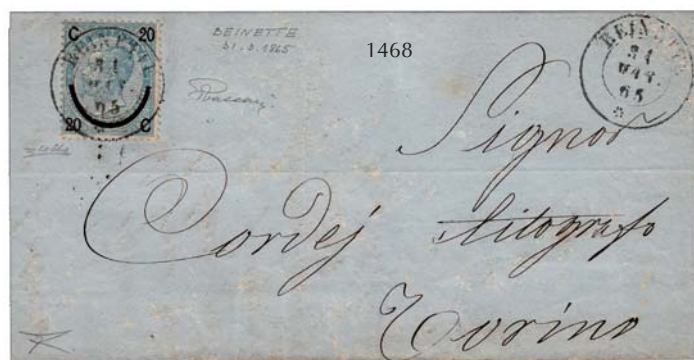 C 20
20 C
BEINETTE
31.3.1865
1468
BEINETTE
31
MAR.
65
Signor
Cordej Litografo
Torino